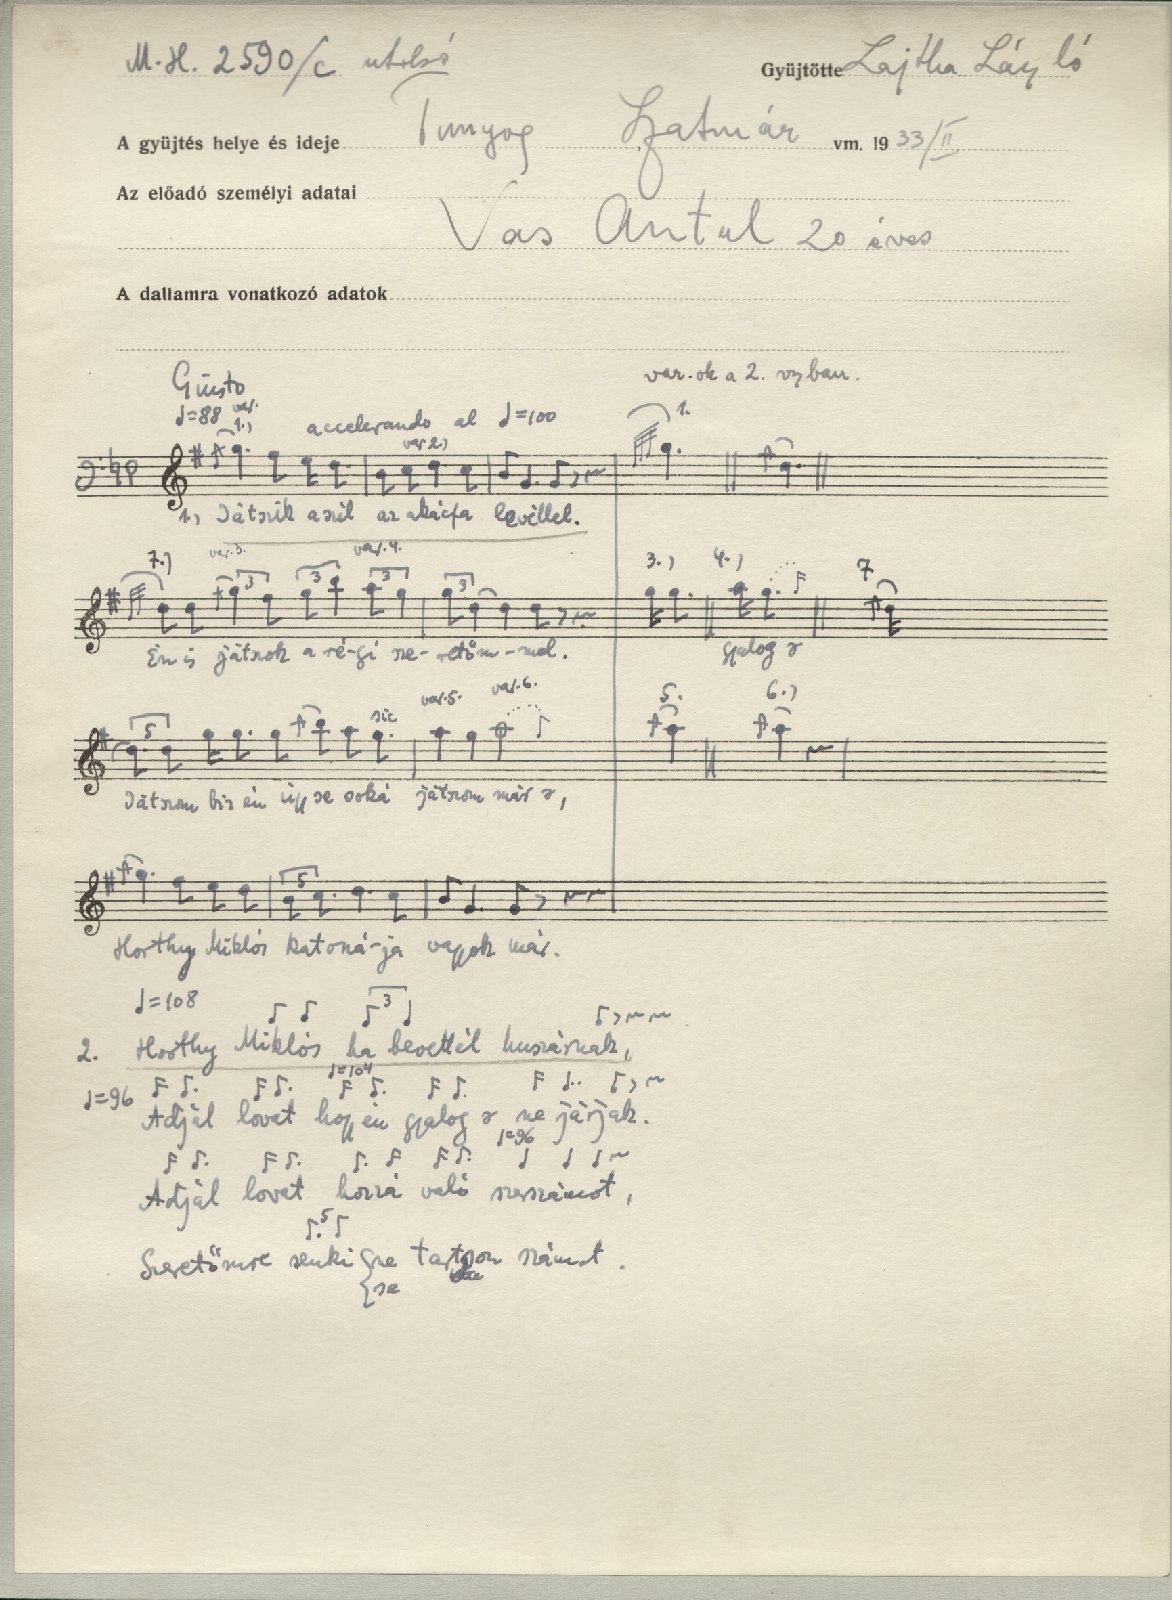 M.H. 2590/c utolsó
Gyüjtötte Lajtha László
A gyüjtés helye és ideje Tunyog Szatmár vm. 1933/II
Az előadó személyi adatai
Vas Antal 20 éves
A dallamra vonatkozó adatok
var.-ok a 2. vszban.
Giusto
♩=88 var. 1.) accelerando al ♩=100 var 2.) 1.
1.) Játszik a szél az akácfa levéllel.
7.) var. 3. var. 4. 3.) 4.) 7
3 3 3 3
Én is játszok a ré-gi sze-retőm-mel. gyalog
var. 5. var. 6. 5. 6.)
5 sic
Játszom biz én úgy se soká játszom már
5
Horthy Miklós katoná-ja vagyok már.
♩=108 3
2. Horthy Miklós ha bevettél huszárnak,
♩=104
♩=96 Adjál lovat hogy én gyalog ne járjak.
♩=96
Adjál lovat hozzá való szerszámot,
5
Szeretőmre senki {ne tartson számot.
{se